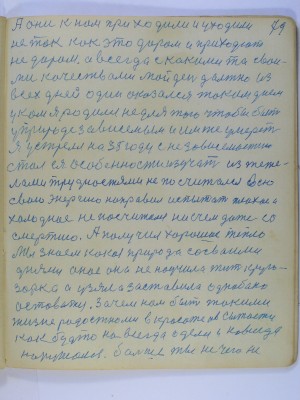 А они к нам приходили и уходили 79
не так как это даром и приходят
не даром, а всегда с какими то свои-
ми качествами. Найден должно из
всех дней один оказался таким днем
уком я родили не для того чтобы быть
у природе зависемым и именно умерет-
Я устрем на 35 году с независемостию
стал ся особенности изучат из тяже-
лами трудностями не по считался всю
свою энергию направил испытат плохое а
холодное не посчитали нисчем даже со
смертию. А получил хорошое тепло
Мы знаем какая природа со своими
днями оная она не получила тот круго-
заставила одинаково
оставатся. Зачем нам быт такими
жизнерадостными в красоте и в сытости
как будто навсегда сделал и навсегда
нарушался. больше ты не чего не